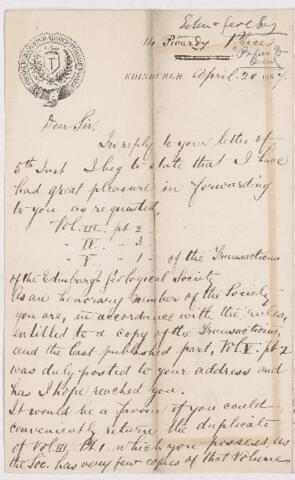 Edinr Geol Soc
14 Picardy Place
EDINBURGH April 20 1887.
Dear Sir,
In reply to your letter of
5th Inst I beg to state that I have
had great pleasure in forwarding
to you as requested,
Vol. III pt 2
" IV " 3
" V " 1 - of the Transactions
of the Edinburgh Geological Society
As an honorary member of the Society
you are, in accordance with the rules,
entitled to a copy of the Transactions,
and the last published part, Vol. V. pt 2
was duly posted to your address and
has I hope reached you.
It would be a favour if you could
conveniently return the duplicate
of Vol III Pt. 1. which you possess, as
the Soc. has very few copies of that Volume